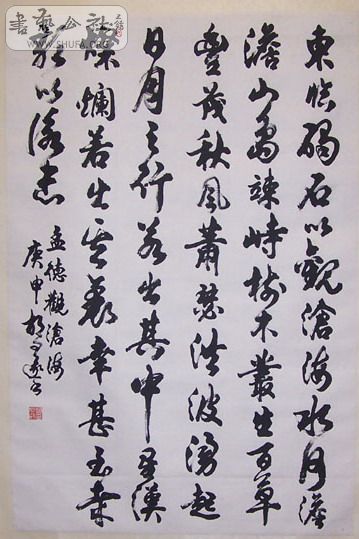 東臨碣石以觀滄海水何澹
澹山島竦峙樹木叢生百草
豐茂秋風蕭瑟洪波湧起
日月之行若出其中星漢
燦爛若出其裏幸甚至哉
歌以詠志
孟德觀滄海
庚申胡问遂书
書藝公社
WWW.SHUFA.ORG